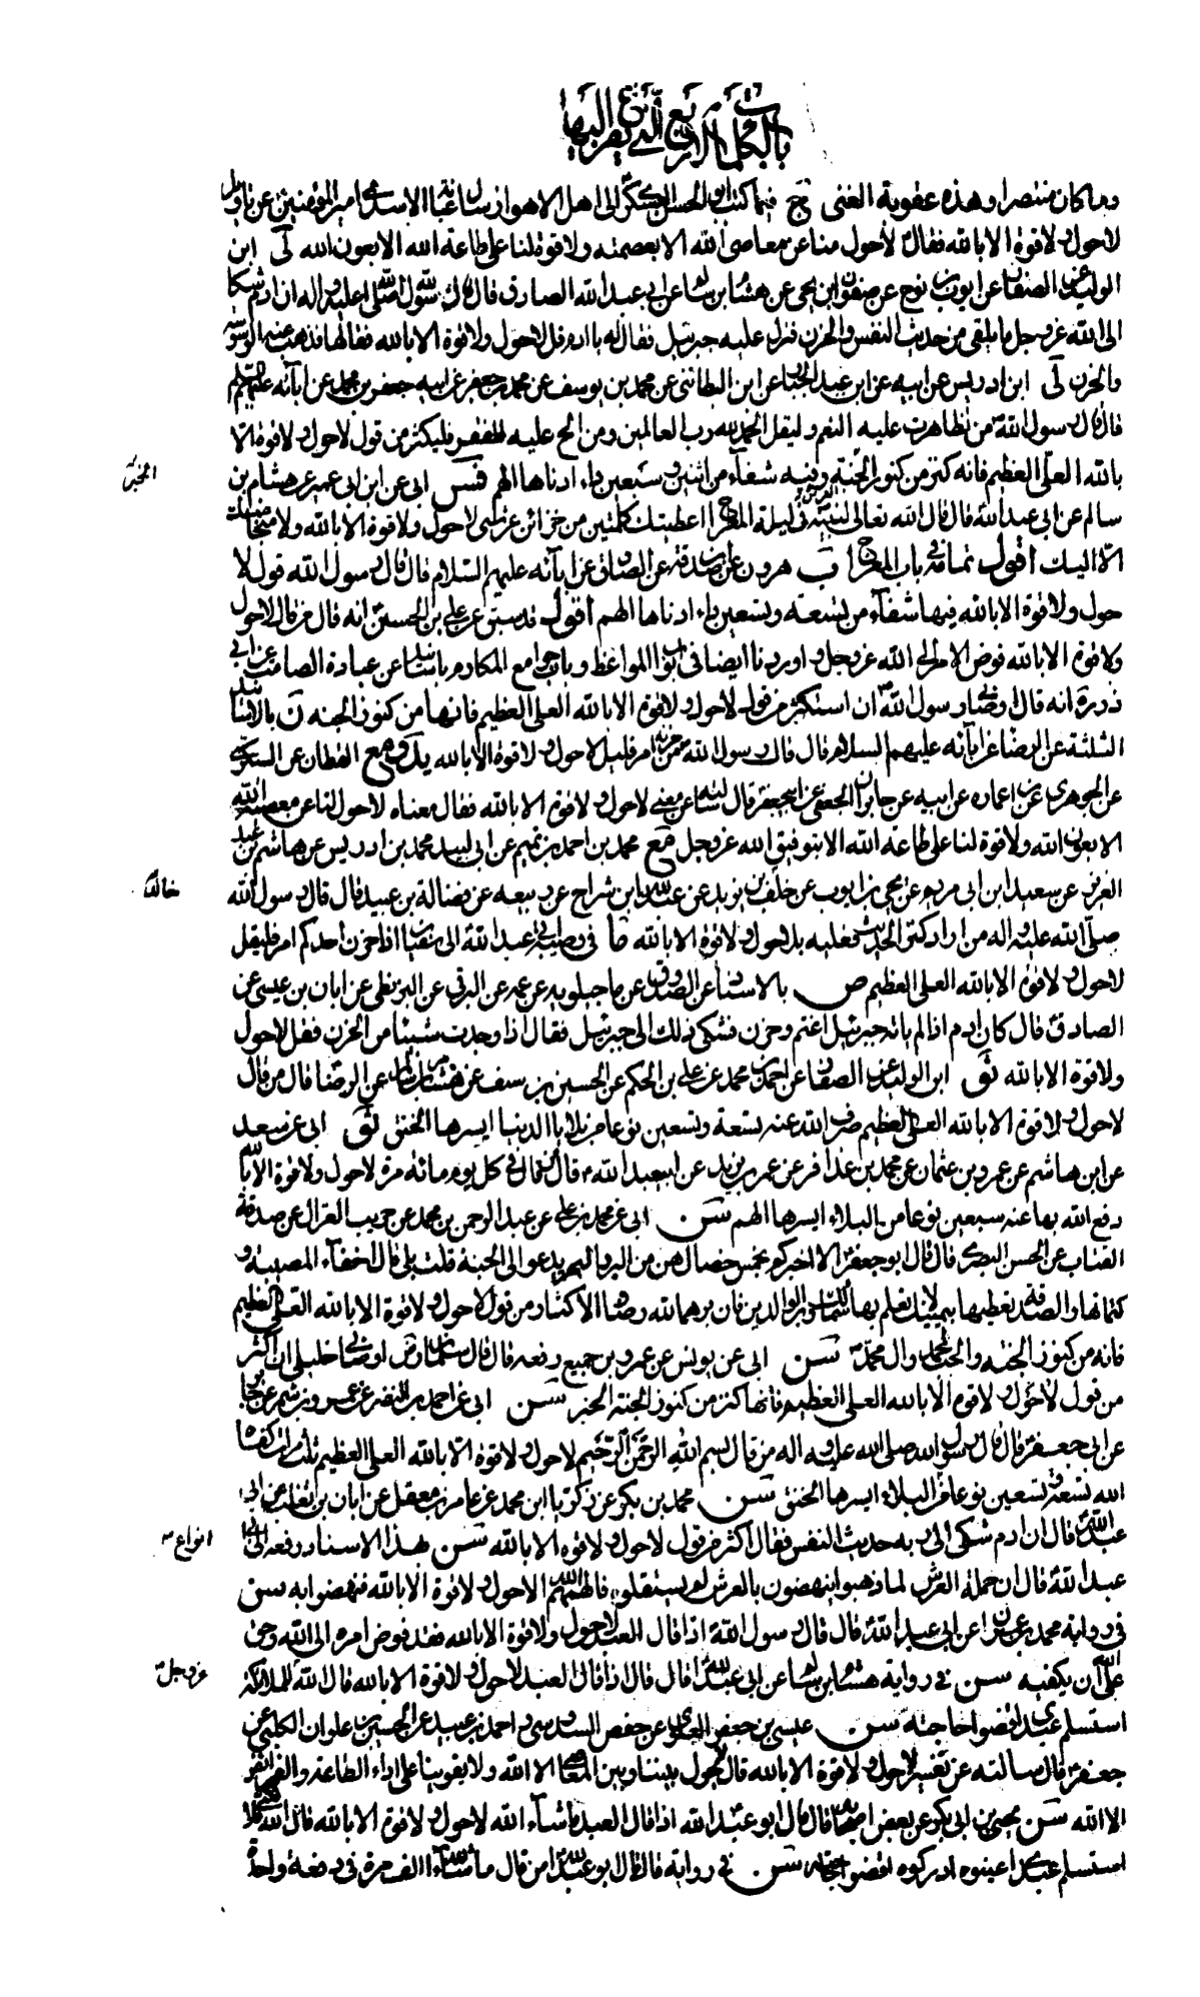 بالكلمات الاربع التى يفزع اليها
وما كان منتصرا وهذه عقوبة الغنى ج فيما كتب ابو الحسن العسكرى الى اهل الاهواز سال عباية الاسدى امير المؤمنين عن تاويل
لا حول ولا قوة الا بالله فقال لا حول منا عن معاصى الله الا بعصمته ولا قوة لنا على طاعة الله الا بعون الله لى ابن
الوليد عن الصفار عن ايوب بن نوح عن صفوان بن يحيى عن هشام بن سالم عن ابى عبد الله الصادق قال قال رسول الله صلى الله عليه واله ان ادم شكا
الى الله عز وجل ما يلقى من حديث النفس والحزن فنزل عليه جبرئيل فقال له يا ادم قل لا حول ولا قوة الا بالله فقالها فذهب عنه الوسوسة
والحزن لى ابن ادريس عن ابيه عن ابن عبد الجبار عن ابن البطائنى عن محمد بن يوسف عن محمد بن جعفر عن ابيه جعفر بن محمد عن ابائه عليهم السلم
قال قال رسول الله من تظاهرت عليه النعم فليقل الحمد لله رب العالمين ومن الح عليه الفقر فليكثر من قول لا حول ولا قوة الا
بالله العلى العظيم فانه كنز من كنوز الجنة وفيه شفآء من اثنين وسبعين داء ادناها الهم فس ابى عن ابن ابى عمير عن هشام بن
سالم عن ابى عبد الله قال قال الله تعالى لنبيه فى ليلة المعراج اعطيتك كلمتين من خزائن عرشى لا حول ولا قوة الا بالله ولا منجا منك
الا اليك اقول تمامه فى باب المعراج ب هرون عن ابن صدقة عن الصادق عن ابآئه عليهم السلام قال قال رسول الله قول لا
حول ولا قوة الا بالله فيها شفآء من تسعة وتسعين داء ادناها الهم اقول قد سبق عن على بن الحسين انه قال من قال لا حول
ولا قوة الا بالله فوض الامر الى الله عز وجل واوردنا ايضا فى ابواب المواعظ وباب جوامع المكارم باسانيد عن عبادة الصامت عن ابى
ذر ره انه قال اوصانى رسول الله ان استكثر من قول لا حول ولا قوة الا بالله العلى العظيم فانها من كنوز الجنه ن بالاسانيد
الثلثة عن الرضا عن ابآئه عليهم السلام قال قال رسول الله من حزنه امر فليقل لا حول ولا قوة الا بالله يد مع القطان عن السكرى
عن الجوهرى عن ابن عماره عن ابيه عن جابر الجعفى عن ابى جعفر قال سئلته عن معنى لا حول ولا قوة الا بالله فقال معناه لا حول لنا عن معصية الله
الا بعون الله ولا قوة لنا على طاعة الله الا بتوفيق الله عز وجل مع محمد بن احمد بن تميم عن ابى لبيد محمد بن ادريس عن هاشم بن عبد
العزيز عن سعيد ابن ابى مريم عن يحيى بن ايوب عن خلف بن يزيد عن عبد الله ابن شراح عن ربيعه عن فضالة بن عبيد قال قال رسول الله
صلى الله عليه واله من اراد كنز الحديث فعليه بلا حول ولا قوة الا بالله ما فى وصية ابى عبد الله الى سفيان اذا حزن احدكم امر فليقل
لا حول ولا قوة الا بالله العلى العظيم ص بالاسناد عن الصدوق عن ماجيلويه عن عمه عن البرقى عن البزنطى عن ابان بن عيسى عن
الصادق قال كان ادم اذا لم ياته جبرئيل اغتم وحزن فشكى ذلك الى جبرئيل فقال اذا وجدت شيئا من الحزن فقل لا حول
ولا قوة الا بالله ثو ابن الوليد عن الصفار عن احمد بن محمد عن على بن الحكم عن الحسين بن سيف عن هشام بن سالم عن الرضا قال من قال
لا حول ولا قوة الا بالله العلى العظيم صرف الله عنه تسعة وتسعين نوعا من بلايا الدنيا ايسرها الخنق ثو ابى عن سعد
عن ابن هاشم عن عمرو بن عثمان عن محمد بن عذافر عن عمر بن يزيد عن ابيعبد الله قال من قال فى كل يوم مائه مرة لا حول ولا قوة الا بالله
دفع الله بها عنه سبعين نوعا من البلاء ايسرها الهم سن ابى عن محمد بن على عن عبد الرحمن بن محمد عن حريب الغزال عن صدقة
القتاب عن الحسن البصرى قال قال ابو جعفر الا اخبركم بخمس خصال هن من البر والبر يدعو الى الجنة قلت بلى قال اخفآء المصيبة و
كتمانها والصدقة تعطيها بيمينك لا تعلم بها شمالك وبر الوالدين فان برهما لله رضى والاكثار من قول لا حول ولا قوة الا بالله العلى العظيم
فانه من كنوز الجنه والحب لمحمد وال محمد سن ابى عن يونس عن عمرو بن جميع رفعه قال قال سلمان اوصانى خليلى ان اكثر
من قول لا حول ولا قوة الا بالله العلى العظيم فانها كنز من كنوز الجنة الخبر سن ابى عن احمد بن النضر عن عمرو بن شمر عن جابر
عن ابى جعفر قال قال رسول الله صلى الله عليه واله من قال بسم الله الرحمن الرحيم لا حول ولا قوة الا بالله العلى العظيم ثلث مرات كفاه
الله تسعة وتسعين نوعا من البلاء ايسرها الخنق سن محمد بن بكر عن زكريا ابن محمد عن عامر بن معقل عن ابان بن تغلب عن ابى
عبد الله قال ان ادم شكى الى ربه حديث النفس فقال اكثر من قول لا حول ولا قوه الا بالله سن بهذا الاسناد رفعه الى ابى
عبد الله قال ان حملة العرش لما ذهبوا ينهضون بالعرش لم يستقلوه فالهمهم الله لا حول ولا قوة الا بالله فنهضوا به سن
فى رواية محمد بن عمران عن ابى عبد الله قال قال رسول الله اذا قال العبد لا حول ولا قوة الا بالله فقد فوض امره الى الله وحق
على الله ان يكفيه سن فى رواية هشام بن سالم عن ابى عبد الله قال قال اذا قال العبد لا حول ولا قوة الا بالله قال الله للملائكه
استسلم عبدى اقضوا حاجته سن عيسى بن جعفر العلوى عن حفص السدوسى واحمد بن عبيد عن الحسين بن علوان الكلبى عن
جعفر قال سالته عن تفسير لا حول ولا قوة الا بالله قال لا يحول بيننا وبين المعاصى الا الله ولا يقوينا على اداء الطاعة والفرائض
الا الله سن يحيى بن ابى بكر عن بعض اصحابه قال قال ابو عبد الله اذا قال العبد ما شآء الله لا حول ولا قوة الا بالله قال الله ملائكتى
استسلم عبدى اعينوه ادركوه اقضوا حاجته سن فى رواية قال قال ابو عبد الله من قال ما شآء الله الف مرة فى دفعة واحدة
الخبر
خالد
انواع
عز وجل